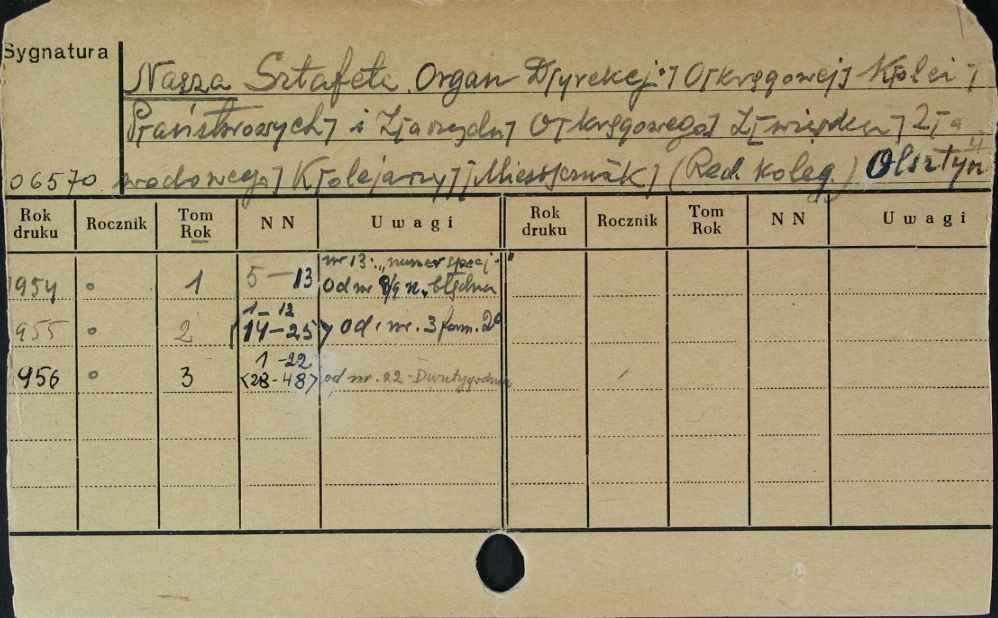 Sygnatura
Nasza Sztafeta. Organ D[yrekcji] O[kręgowej] K[olei]
P[aństwowych] i Z[arządu] O[kręgowego] Z[wiązku] Z[a
06570 wodowego] K[olejarzy] [Miesięcznik] (Red. koleg.) Olsztyn
Rok druku Rocznik Tom Rok NN Uwagi Rok druku Rocznik Tom Rok NN Uwagi
nr 13: „numer specj."
1954 ° 1 5—13 od nr 8/9 n.
1—12
955 ° 2 (14—25) od nr. 3 form. 2°
1—22
956 ° 3 <28-48> od nr. 22 - Dwutygodnik